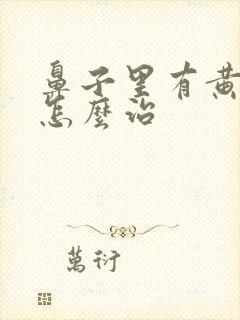 鼻子里有黄
怎麼治
萬衍